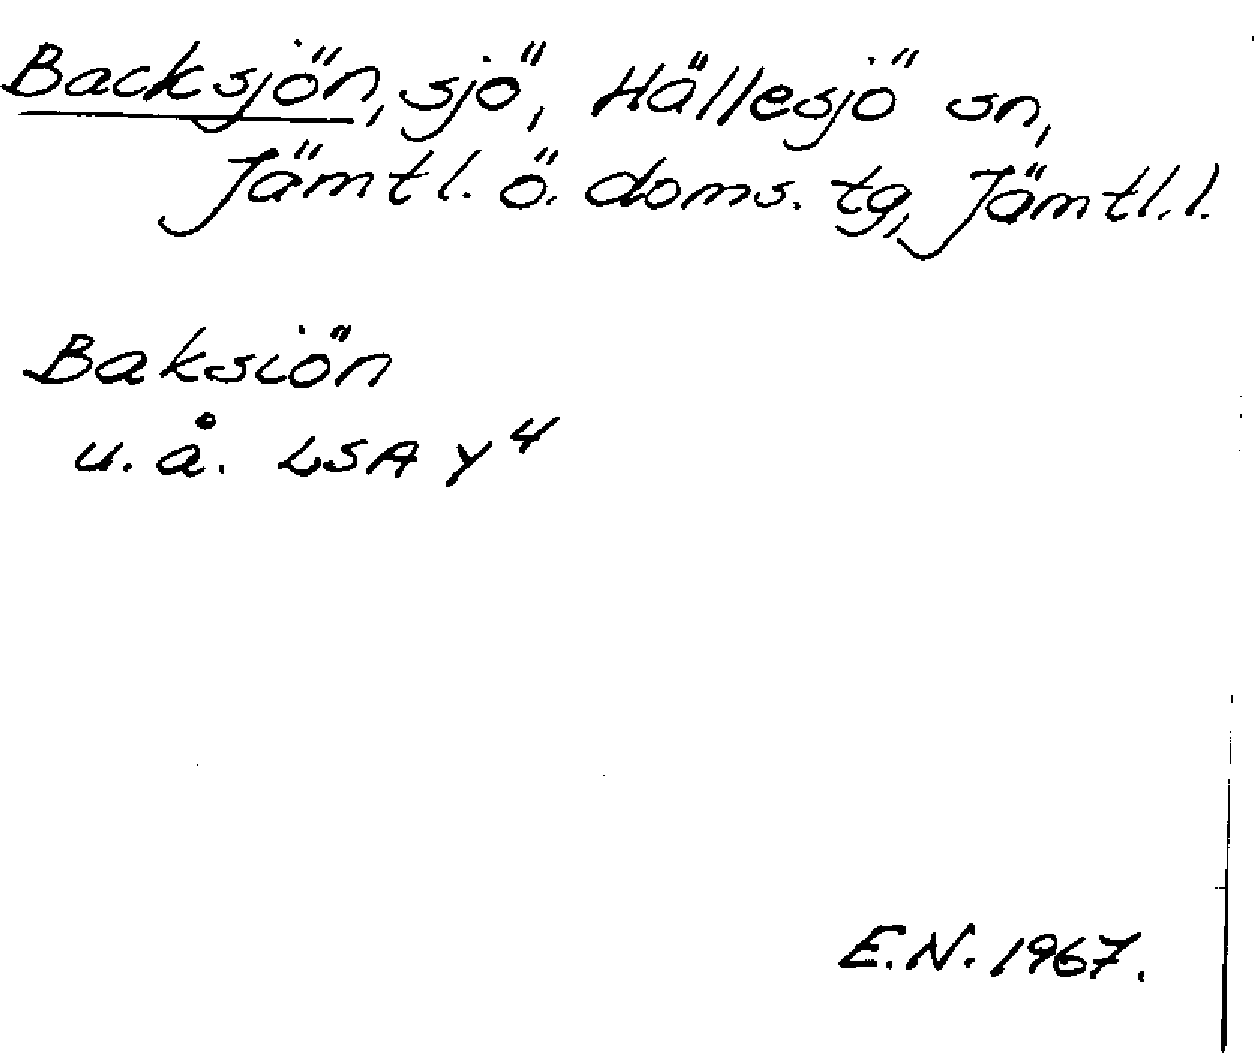 Backsjön, sjö, Hällesjö sn,
Jämtl. ö. doms. tg, Jämtl. l.
Baksiön
u. å. LSA Y 4
E.N. 1967.